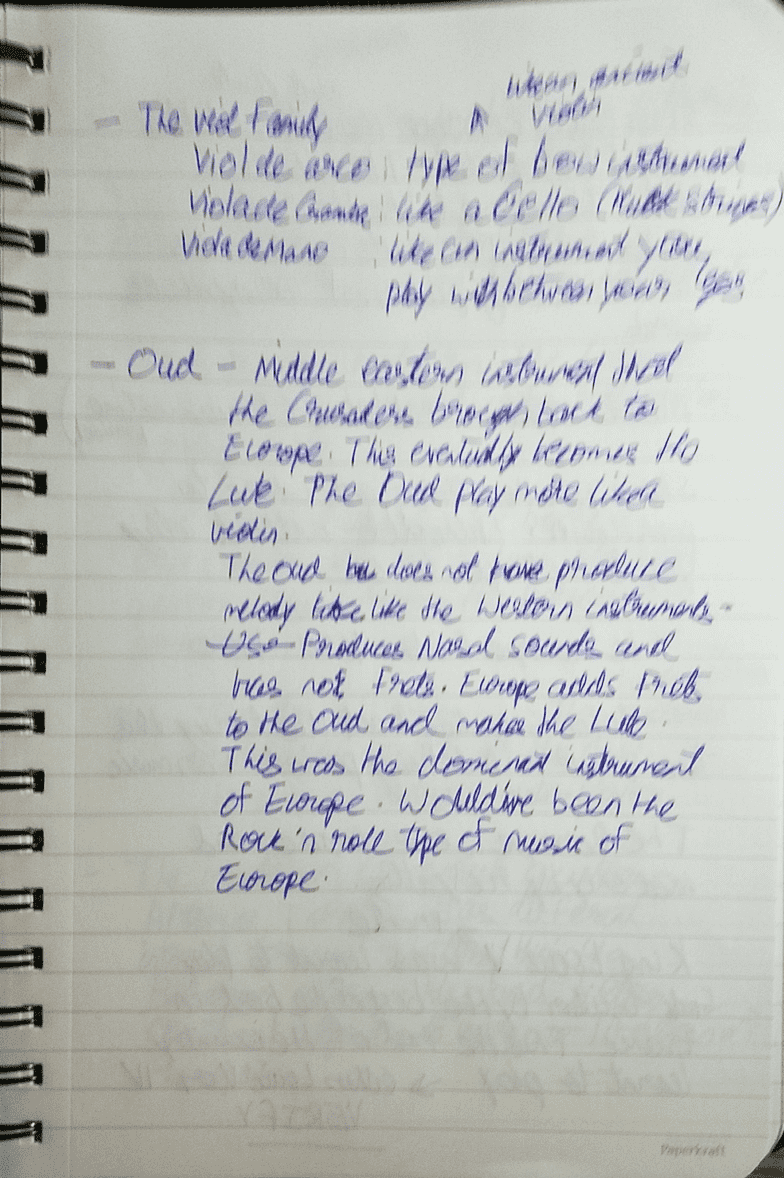 like an ancient
- The viol Family ^ violin
Viol de arco : type of bow instrument
Viola de Gamba : like a Cello (Multi strings)
Viola de Mano : like an instrument you
play with between your legs
- Oud - Middle eastern instrument that
the Crusaders brough back to
Europe. This eventually becomes the
Lute. The Oud play more like a
violin.
The oud does not have produce
melody like like the Western instruments.
Use Produces Nasal sounds and
has not frets. Europe adds frets
to the Oud and makes the Lute.
This was the dominant instrument
of Europe. Would've been the
Rock 'n role type of music of
Europe.
Papercraft